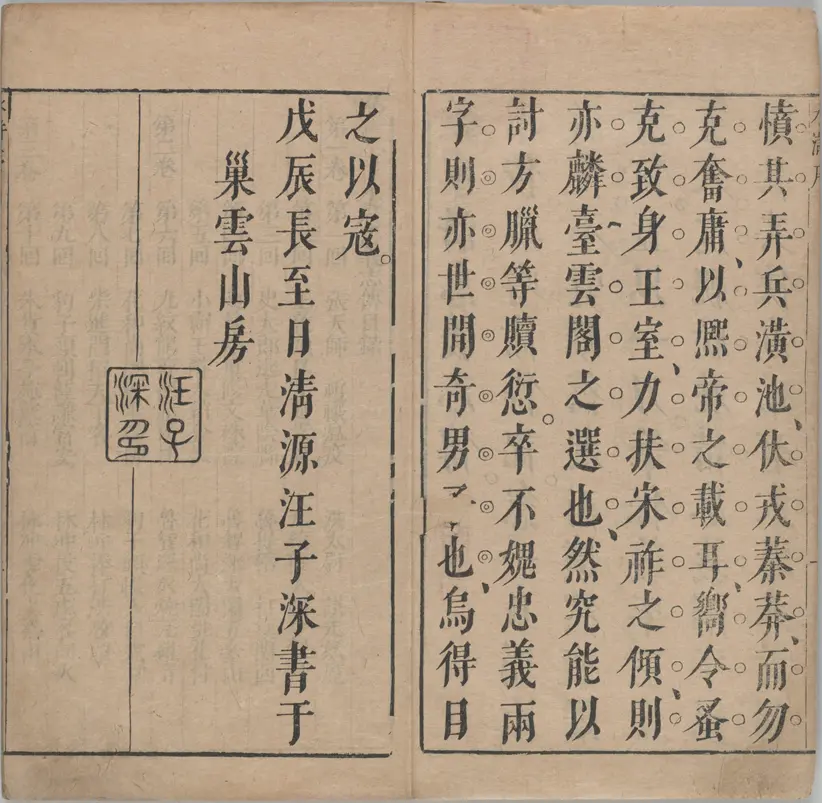 憤其弄兵潢池、伏戎蓁莽、而勿
克奮庸、以熈帝之載耳、嚮令蚤
克致身王室、力扶宋祚之傾、則
亦麟臺雲閣之選也、然究能以
討方臘等贖愆。卒不媿忠義兩
字則亦世間奇男也、烏得目
之以寇。
戊辰長至日清源汪子深書于
巢雲山房
汪子
深印